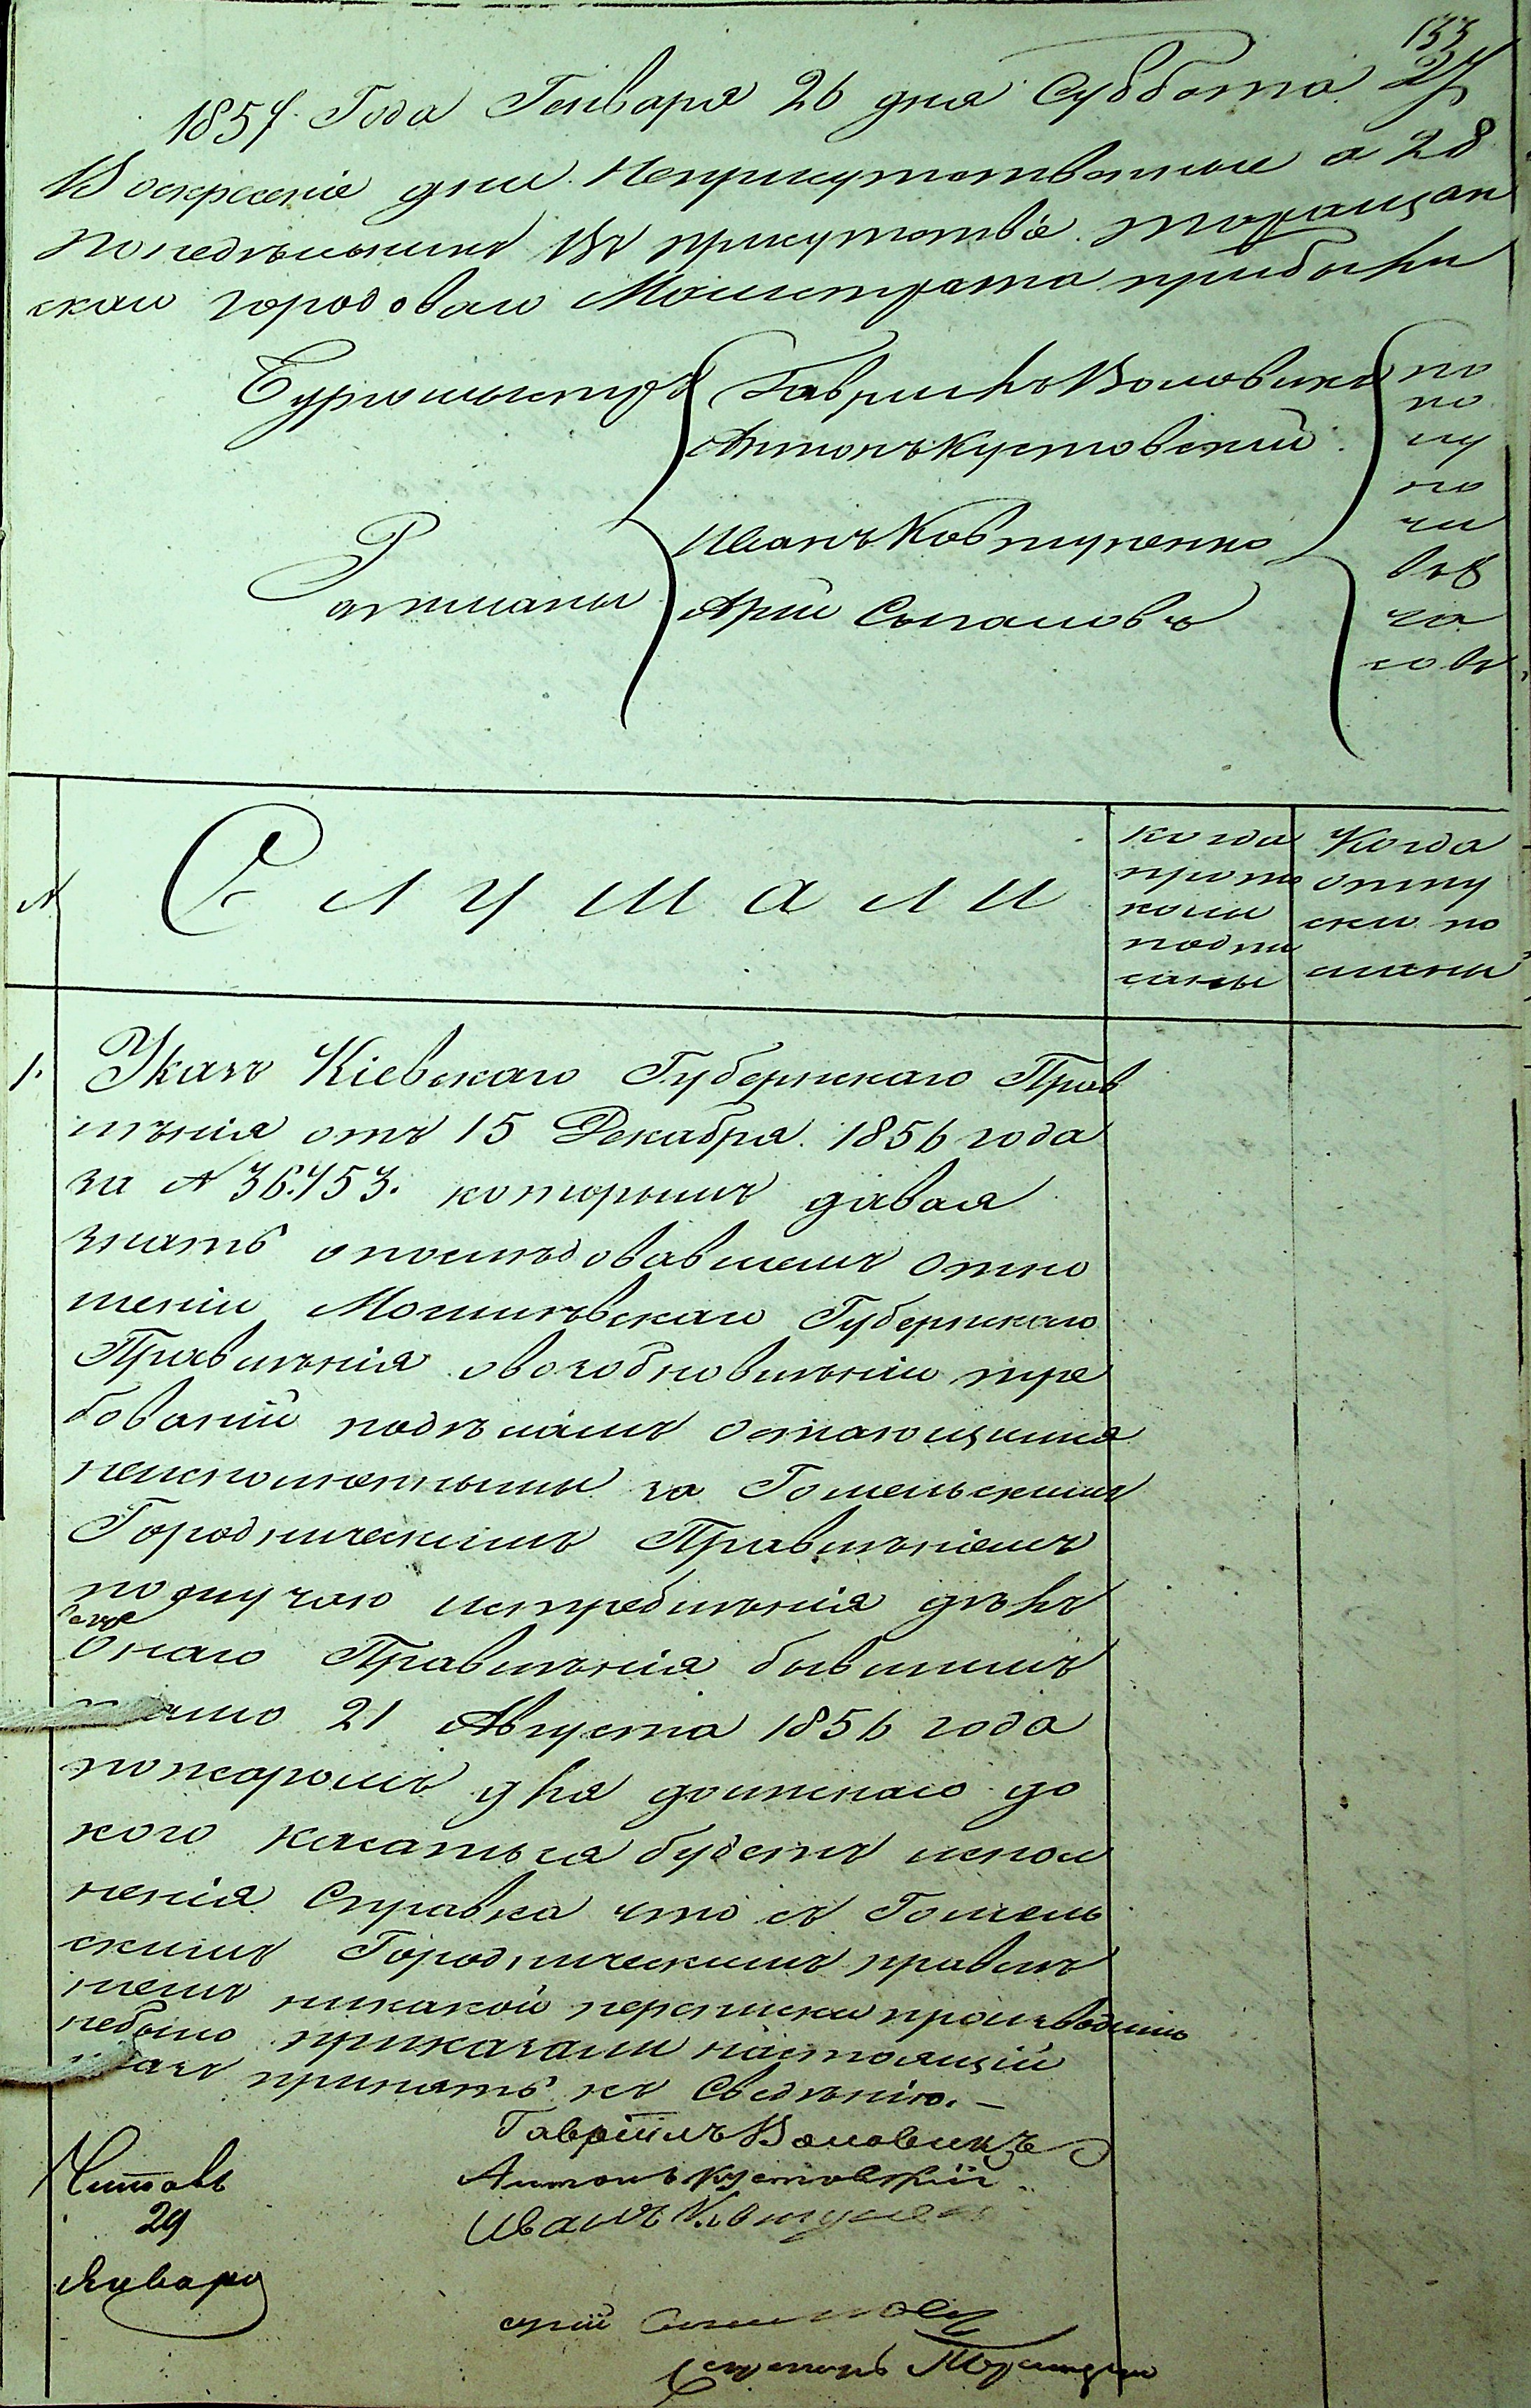 133
1857 Года Генваря 26 дня Суббота 27
Воскресенiе дни Неприсутственные а 28
понедѣльникъ Въ присутствiе Таращан
скаго городоваго Магистрата прибыли
Бургомистръ Гаврiилъ Воловикъ
Антонъ Кустовскiй
Ратманы Иванъ Ковтуненко
Арiй Сигаловъ
по
по
лу
но
чи
въ 8
ча
совъ
№ Слушали
когда
прото
колы
подпи
саны
Когда
отпу
ски по
сланы
1. Указъ Кiевскаго Губернскаго Прав
лѣнiя отъ 15 Декабря 1856 года
за № 36,753. которымъ давая
знать опослѣдовавшемъ отно
шенiи Могилѣвскаго Губернскаго
Правлѣнiя овозобновлѣнiи тре
бованiй подѣламъ остающимся
неисполненными за Гомельскимъ
Городническимъ Правлѣнiемъ
послучаю истреблѣнiя дѣлъ
онаго Правлѣнiя бывшимъ
тамо 21 Августа 1856 года
пожаромъ для должнаго до
кого касаться будетъ испол
ненiя Справка что съ Гомель
скимъ Городническимъ правлѣ
нiемъ никакой переписки производимо
небыло приказали настоящiй
указъ принять къ Сведѣнiю.—
Гаврiилъ Воловикъ
Антонъ Кустовскiй
Иванъ Ковтуненко
Читалъ
29
Января
Арiй Сигаловъ